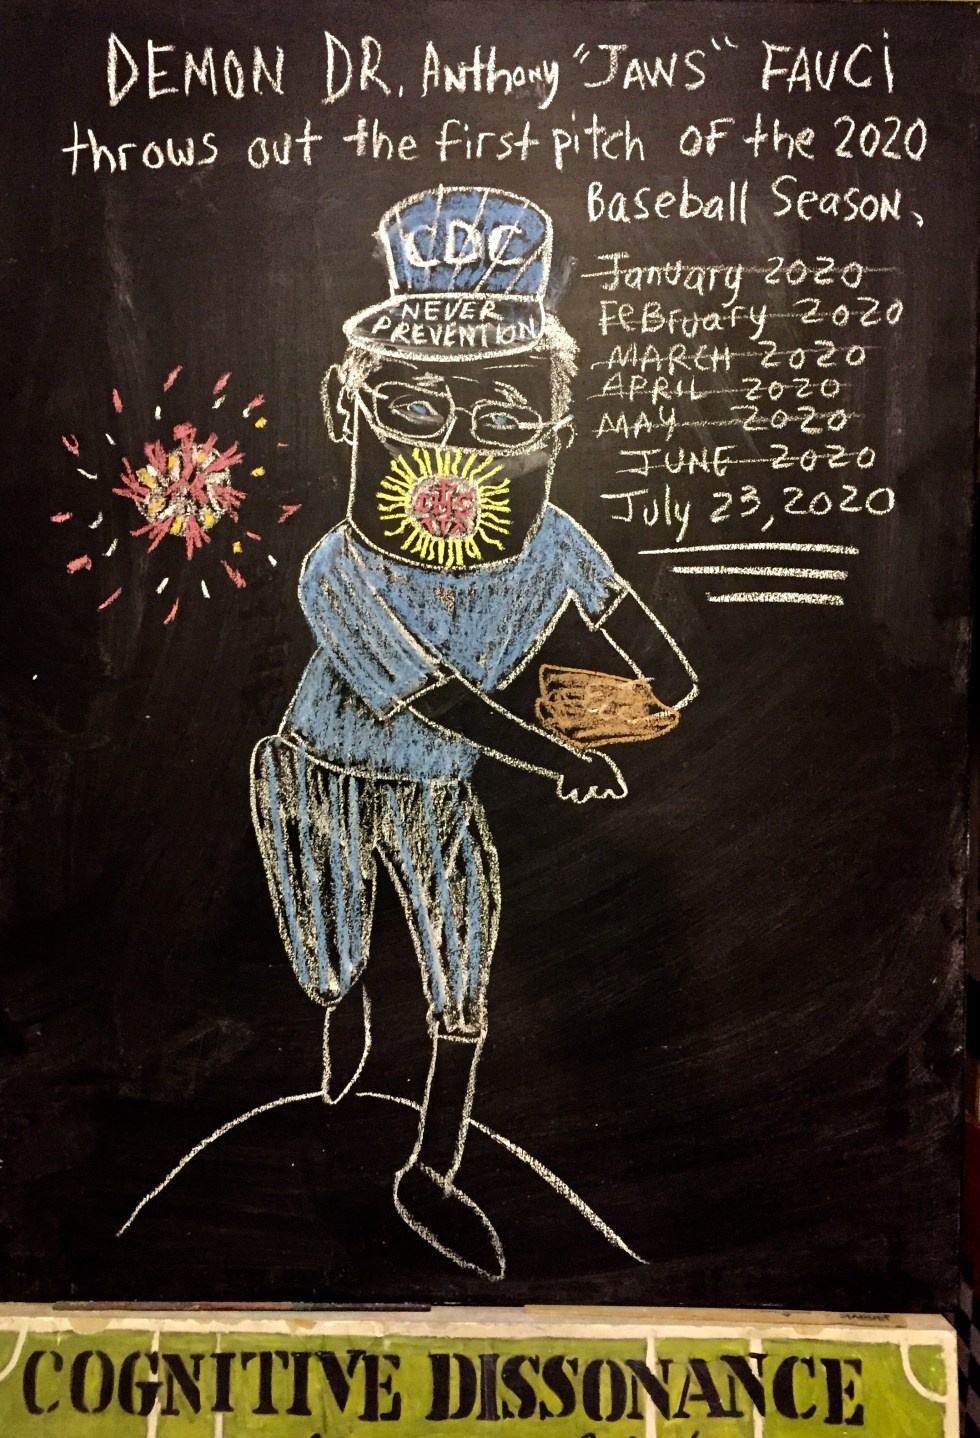 DEMON DR. Anthony "JAWS" FAUCi
throws out the first pitch of the 2020
Baseball Season,
January 2020
FEBruary 2020
MARCH 2020
APRIL 2020
MAY 2020
JUNE 2020
July 23, 2020
CDC
NEVER
PREVENTION
COGNITIVE DISSONANCE